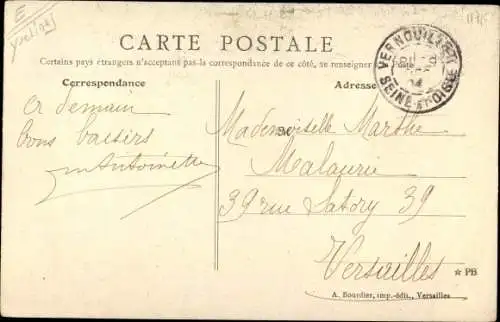 E
Yvelines
CARTE POSTALE
Certains pays étrangers n'acceptant pas la correspondance de ce côté, se renseigner à la Poste
Correspondance
Adresse
VERNOUILLET
SEINE-ET-OISE
a demain
bons baisers
Antoinette
Mademoiselle Marthe
Malaurie
39 rue Satory 39
Versailles
* PB
A. Bourdier, imp.-édit., Versailles